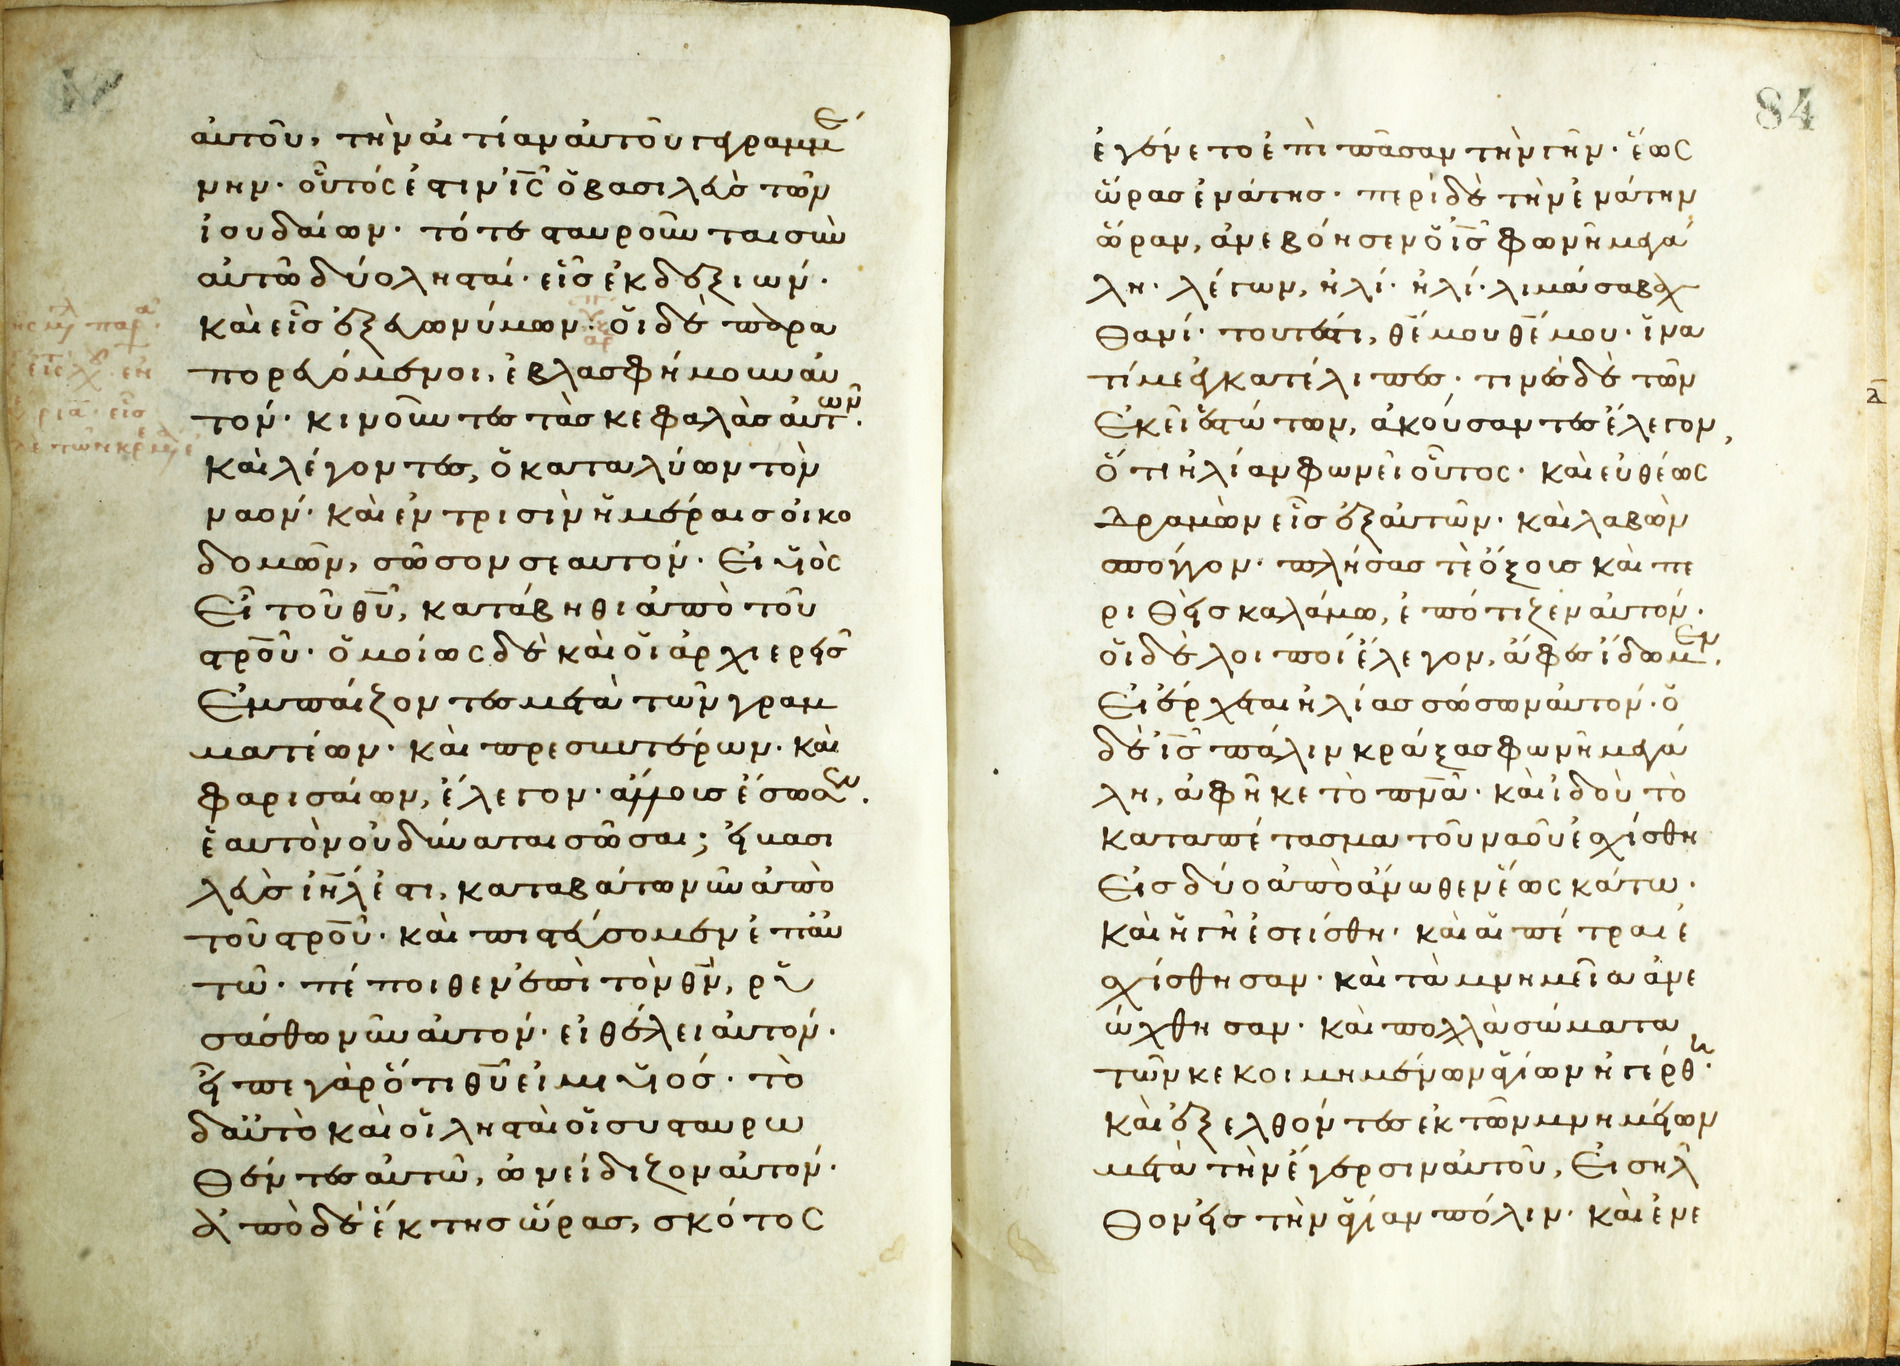 αὐτοῦ, τὴν αἰτίαν αὐτοῦ γεγραμμέ
νην· οὗτός ἐστιν ἰ̅ς̅ ὁ βασιλεὺς τῶν
ἰουδαίων· τότε σταυροῦνται σὺν
αὐτῶ δύο λησταί· εἷς ἐκ δεξιων·
καὶ εἷς ἐξ εὐωνύμων· οἱ δὲ παρα
πορευόμενοι, ἐβλασφήμουν αὐ
τόν· κινοῦντες τὰς κεφαλὰς αὐτῶν·
καὶ λέγοντες, ὁ καταλύων τὸν
ναον· καὶ ἐν τρισὶν ἡμέραις οἰκο
δομῶν, σῶσον σεαυτον· Ει υἱὸς
Εἶ τοῦ θ̅υ̅, κατάβηθι ἀπὸ τοῦ
σ̅ρ̅ο̅ῦ̅· ὁμοίως δὲ καὶ οἱ ἀρχιερεῖς
Ἐμπαίζοντες μετὰ τῶν γραμ
ματέων· καὶ πρεσβυτέρων· καὶ
φαρισαίων, ἔλεγον· ἄλλους ἔσωσεν·
ἑαυτὸν οὐ δύναται σῶσαι; εἰ βασι
λεὺς ἰ̅η̅λ̅ ἐστι, καταβάτω νῦν ἀπὸ
τοῦ σ̅ρ̅ο̅ῦ̅· καὶ πιστεύσομεν ἐπ' αὐ
τῶ· πέποιθεν ἐπὶ τὸν θ̅ν̅, ρυ
σάσθω νῦν αὐτον· εἰ θέλει αὐτον·
εἶπε γὰρ ὅτι θ̅υ̅ εἰμι υἱός· τὸ
δ' αὐτὸ καὶ οἱ λησταὶ οἱ συσταυρω
θέντες αὐτῶ, ὠνείδιζον αὐτον·
Ἀπὸ δὲ ἕκτης ὥρας, σκότος
84
ἐγένετο ἐπὶ πᾶσαν τὴν γῆν· ἕως
ὥρας ἐνάτης· περὶ δὲ τὴν ἐνάτην
ὥραν, ἀνεβόησεν ὁ ἰ̅ς̅ φωνῆ μεγά
λη· λέγων, ἠλί· ἠλί· λιμὰ σαβαχ
θανί· τουτέστι, θ̅ε̅ μου θ̅ε̅ μου· ἵνα
τί με ἐγκατέλιπες· τινὲς δὲ τῶν
Ἐκεῖ ἑστώτων, ἀκούσαντες ἔλεγον,
ὅτι ἠλίαν φωνεῖ οὗτος· καὶ εὐθέως
Δραμὼν εἷς ἐξ αὐτῶν· καὶ λαβὼν
σπόγγον· πλήσας τὲ ὄξους καὶ πε
ριθεὶς καλάμω, ἐπότιζεν αὐτον·
οἱ δὲ λοιποὶ ἔλεγον, ἄφες ἴδωμεν·
Εἰ ἔρχεται ἠλίας σώσων αὐτον· ὁ
δὲ ἰ̅ς̅ πάλιν κράξας φωνῆ μεγά
λη, ἀφῆκε τὸ π̅ν̅α̅· καὶ ἰδοὺ τὸ
καταπέτασμα τοῦ ναοῦ ἐσχίσθη
Εἰς δύο ἀπὸ ἄνωθεν ἕως κάτω·
καὶ ἡ γῆ ἐσείσθη· καὶ αἱ πέτραι ἐ
σχίσθησαν· καὶ τὰ μνημεῖα ἀνε
ώχθησαν· καὶ πολλὰ σώματα
τῶν κεκοιμημένων ἁγίων ἠγέρθη·
καὶ ἐξελθόντες ἐκ τῶν μνημείων
μετὰ τὴν ἔγερσιν αὐτοῦ, Εἰσῆλ
θον εἰς τὴν ἁγίαν πόλιν· καὶ ἐνε